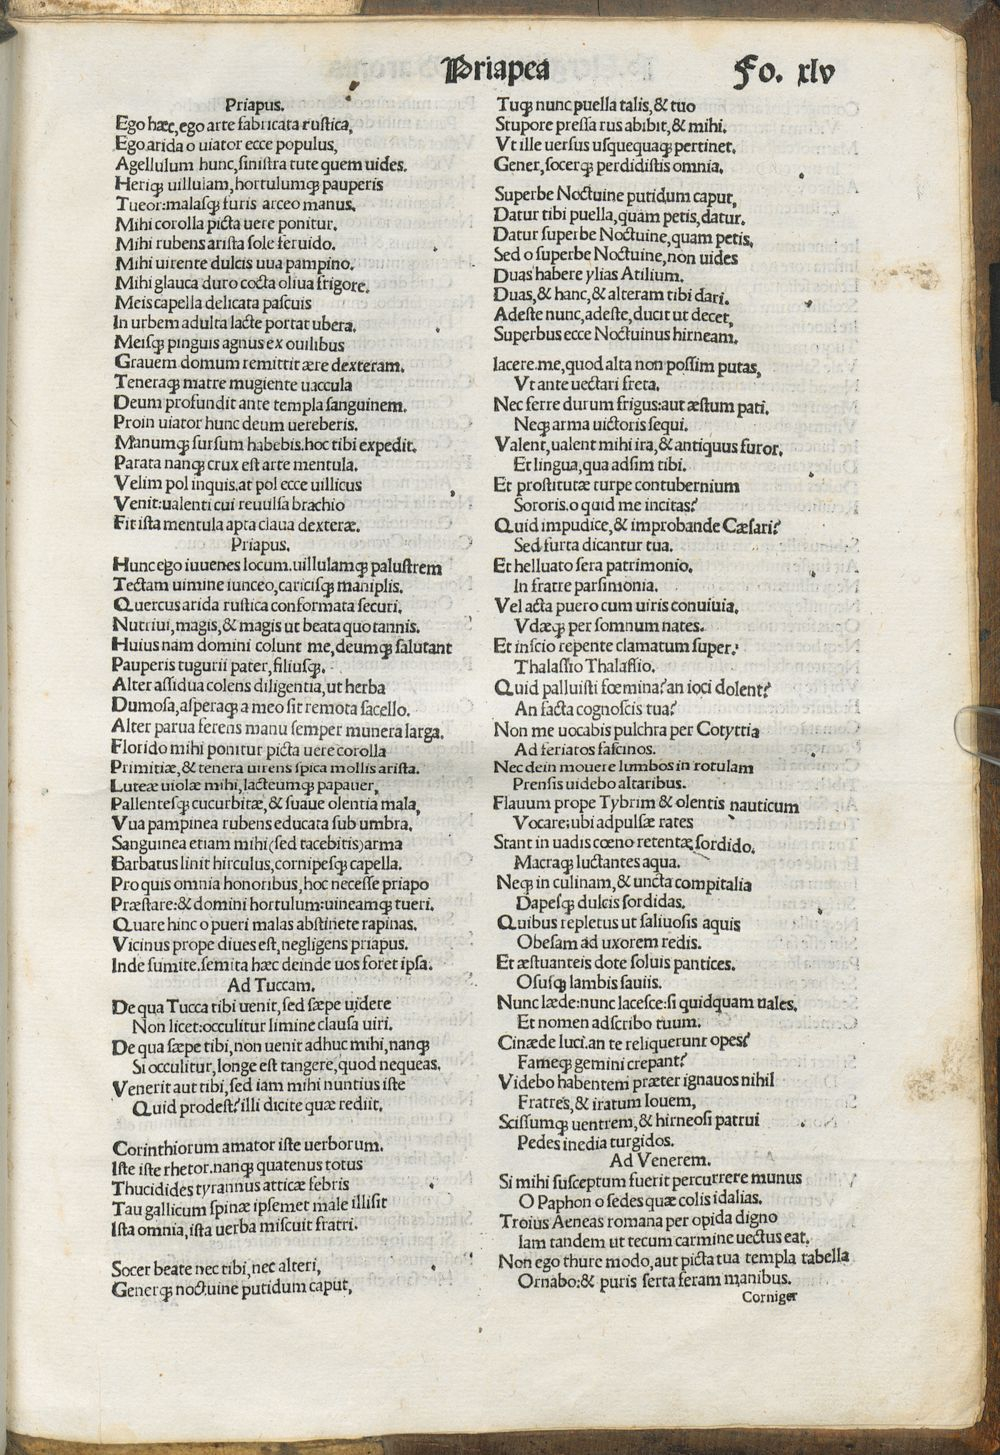 Priapea
Fo. xlv
Priapus.
Ego hæc, ego arte fabricata rustica,
Ego arida o uiator ecce populus,
Agellulum hunc, sinistra tute quem uides.
Heriqꝫ uillulam, hortulumqꝫ pauperis
Tueor: malasqꝫ furis arceo manus.
Mihi corolla picta uere ponitur.
Mihi rubens arista sole feruido.
Mihi uirente dulcis uua pampino.
Mihi glauca duro cocta oliua frigore.
Meis capella delicata pascuis
In urbem adulta lacte portat ubera.
Meisqꝫ pinguis agnus ex ouilibus
Grauem domum remittit ære dexteram.
Teneraqꝫ matre mugiente uaccula
Deum profundit ante templa sanguinem.
Proin uiator hunc deum uereberis.
Manumqꝫ sursum habebis. hoc tibi expedit.
Parata nanqꝫ crux est arte mentula.
Velim pol inquis. at pol ecce uillicus
Venit: ualenti cui reuulsa brachio
Fit ista mentula apta claua dexteræ.
Priapus.
Hunc ego iuuenes locum. uillulamqꝫ palustrem
Tectam uimine iunceo, caricisqꝫ maniplis.
Quercus arida rustica conformata securi.
Nutriui, magis, & magis ut beata quotannis.
Huius nam domini colunt me, deumqꝫ salutant
Pauperis tugurii pater, filiusqꝫ.
Alter assidua colens diligentia, ut herba
Dumosa, asperaqꝫ a meo sit remota sacello.
Alter parua ferens manu semper munera larga.
Florido mihi ponitur picta uere corolla
Primitiæ, & tenera uirens spica mollis arista.
Luteæ uiolæ mihi, lacteumqꝫ papauer,
Pallentesqꝫ cucurbitæ, & suaue olentia mala,
Vua pampinea rubens educata sub umbra.
Sanguinea etiam mihi (sed tacebitis) arma
Barbatus linit hirculus, cornipesqꝫ capella.
Pro quis omnia honoribus, hoc necesse priapo
Præstare: & domini hortulum: uineamqꝫ tueri.
Quare hinc o pueri malas abstinete rapinas.
Vicinus prope diues est, negligens priapus.
Inde sumite. semita hæc deinde uos foret ipsa.
Ad Tuccam.
De qua Tucca tibi uenit, sed sæpe uidere
Non licet: occulitur limine clausa uiri.
De qua sæpe tibi, non uenit adhuc mihi, nanqꝫ
Si occulitur, longe est tangere, quod nequeas.
Venerit aut tibi, sed iam mihi nuntius iste
Quid prodest? illi dicite quæ rediit.
Corinthiorum amator iste uerborum.
Iste iste rhetor. nanqꝫ quatenus totus
Thucidides tyrannus atticæ febris
Tau gallicum spinæ ipsemet male illisit
Ista omnia, ista uerba miscuit fratri.
Socer beate nec tibi, nec alteri,
Generqꝫ noctuine putidum caput,
Tuqꝫ nunc puella talis, & tuo
Stupore pressa rus abibit, & mihi.
Vt ille uersus usquequaqꝫ pertinet.
Gener, socerqꝫ perdidistis omnia.
Superbe Noctuine putidum caput,
Datur tibi puella, quam petis, datur.
Datur superbe Noctuine, quam petis.
Sed o superbe Noctuine, non uides
Duas habere ylias Atilium.
Duas, & hanc, & alteram tibi dari.
Adeste nunc, adeste, ducit ut decet,
Superbus ecce Noctuinus hirneam.
Iacere. me, quod alta non possim putas,
Vt ante uectari freta.
Nec ferre durum frigus: aut æstum pati.
Neqꝫ arma uictoris sequi.
Valent, ualent mihi ira, & antiquus furor,
Et lingua, qua adsim tibi.
Et prostitutæ turpe contubernium
Sororis. o quid me incitas?
Quid impudice, & improbande Cæsari?
Sed furta dicantur tua.
Et helluato sera patrimonio.
In fratre parsimonia.
Vel acta puero cum uiris conuiuia.
Vdæqꝫ per somnum nates.
Et inscio repente clamatum super.
Thalassio Thalassio.
Quid palluisti fœmina? an ioci dolent?
An facta cognoscis tua?
Non me uocabis pulchra per Cotyttia
Ad feriatos fascinos.
Nec dein mouere lumbos in rotulam
Prensis uidebo altaribus.
Flauum prope Tybrim & olentis nauticum
Vocare: ubi adpulsæ rates
Stant in uadis cœno retentæ sordido.
Macraqꝫ luctantes aqua.
Neqꝫ in culinam, & uncta compitalia
Dapesqꝫ dulcis sordidas.
Quibus repletus ut saliuosis aquis
Obesam ad uxorem redis.
Et æstuanteis dote soluis pantices.
Osusqꝫ lambis sauiis.
Nunc læde: nunc lacesce: si quidquam uales.
Et nomen adscribo tuum.
Cinæde luci. an te reliquerunt opes?
Fameqꝫ gemini crepant?
Videbo habentem præter ignauos nihil
Fratres, & iratum Iouem,
Scissumqꝫ uentrem, & hirneosi patrui
Pedes inedia turgidos.
Ad Venerem.
Si mihi susceptum fuerit percurrere munus
O Paphon o sedes quæ colis idalias.
Troius Aeneas romana per opida digno
Iam tandem ut tecum carmine uectus eat.
Non ego thure modo, aut picta tua templa tabella
Ornabo: & puris serta feram manibus.
Corniger